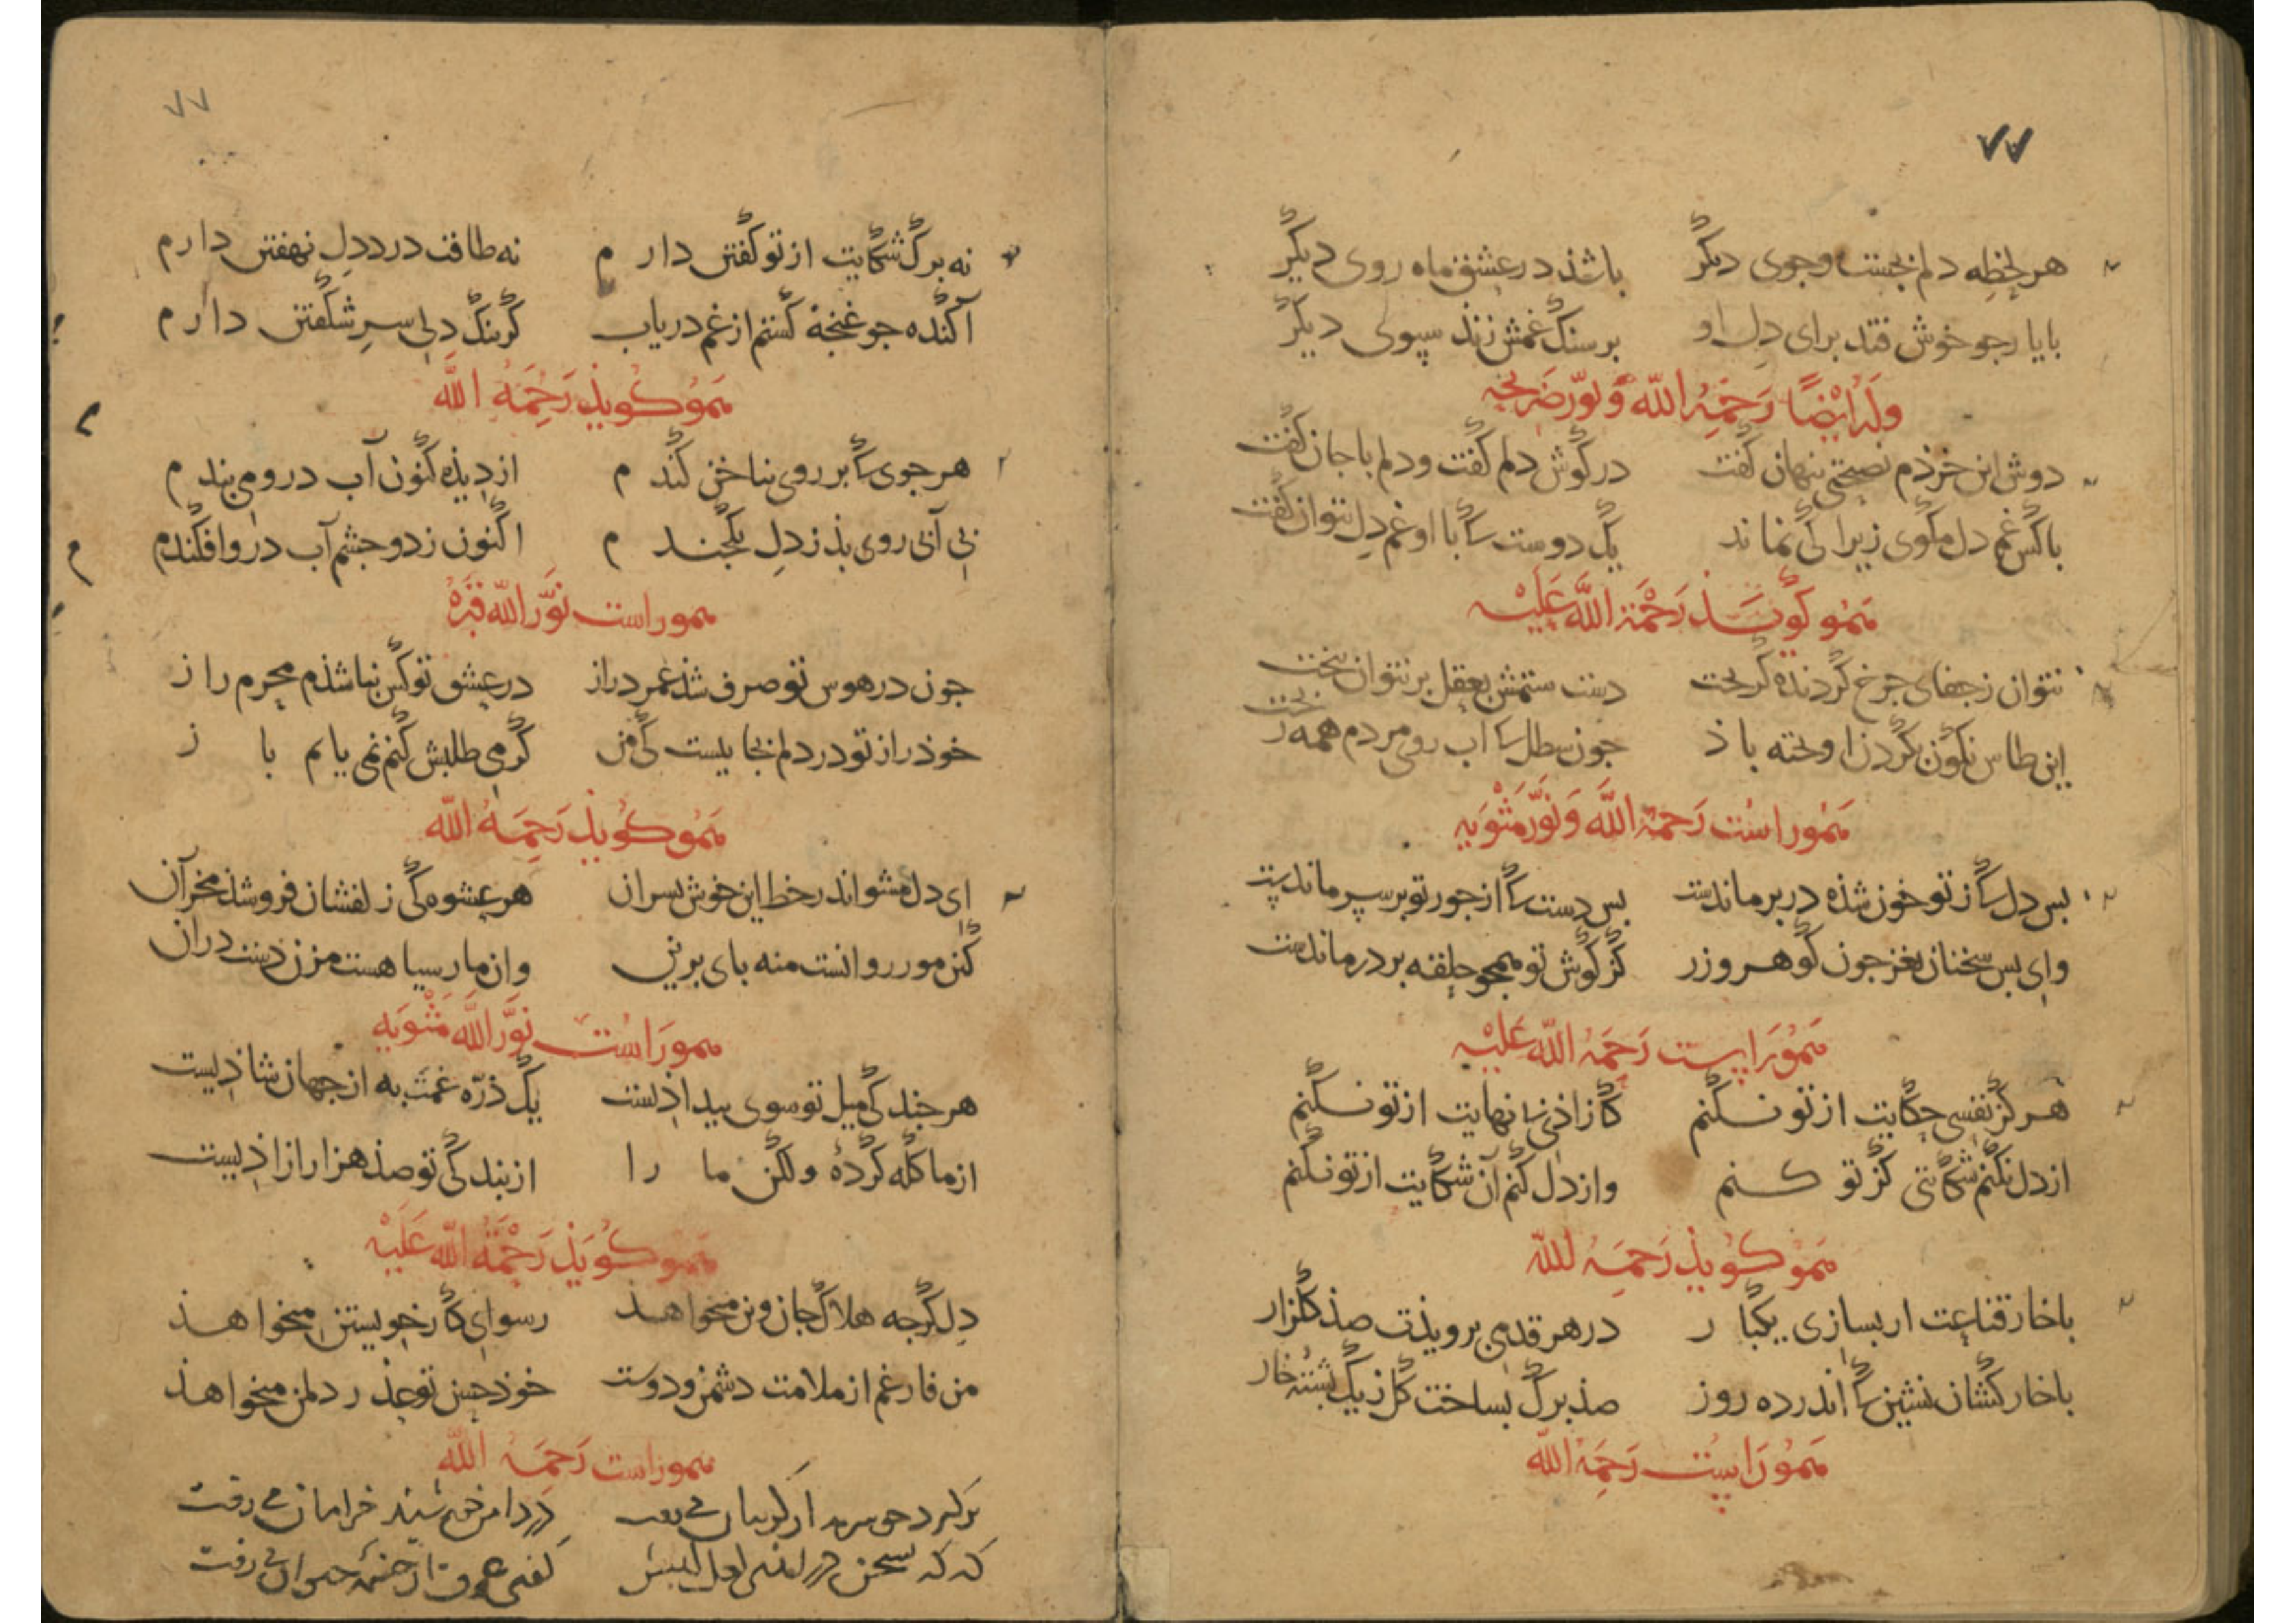 ٧٧
هر لحظه دلم بجست وجوی دیگر باشذ در عشق ماه روی دیگر
بایا رجو خوش فتد برای دل او بر سنگ غمش زند سبوی دیگر
وله ایضًا رَحمَهُ الله وَنَوّر ضَریحَه
دوش این خرذم نصیحتی پنهان گفت در گوش دلم گفت و دلم با جان گفت
با کس غم دل مگوی زیرا کی نماند یک دوست کا با او غم دل بتوان گفت
هَمُو کَویَذ رَحْمَة اللَّه عَلَیْه
نتوان ز جفای جرخ گردنده گریخت دست ستمش بعقل بر نتوان بیخت
این طاس نگون بگردن اوخته باذ جون سطل کا آب روی مردم همه ریخت
هَمُوراسْت رَحمَة اللَّه وَنَوَّر مَثْوَیه
بس دل کا ز تو خون شذه در بر ماندست بس دست کا از جور تو بر سر ماندست
وای بس سخنان نغز جون گوهر و زر کز گوش تو همجو حلقه بر در ماندست
هَمُوراست رَحمَهُ اللّه عَلَیْه
هرگز نفسی حکایت از تو نکنم کازاذی بی نهایت از تو نکنم
از دل نکنم شکایتی کز تو کنم واز دل کنم آن شکایت از تو نکنم
هَمُو کُویذ رَحمَهُ اللّه
با خار قناعت ار بسازی یکبار در هر قدمی برویذت صذ گلزار
با خار کشان نشین کا اندر ده روز صذ برگ بساخت گل ز یک پشته خار
هَمُوراست رَحمَهُ اللّه
٧٧
نه برگ شکایت از تو گفتن دارم نه طاقت درد دل نهفتن دارم
آکنده جو غنجه گشتم از غم دریاب کز تنگ دلی سر شگفتن دارم
هَمُو کُویذ رَحِمَهُ اللَّه
هر جوی کا بر روی بناخن کندم از دیذه کنون آب درو می بندم
بی آبی روی بذ ز دل یکجندم اکنون ز دو جشم آب در وافکندم
هموراست نَوَّر اللّه قبْرَهُ
جون در هوس تو صرف شذ عمر دراز در عشق تو کس نباشذم محرم راز
خوذ راز تو در دلم بجاییست کی من گر می طلبش کنم نمی یابم باز
هَمُو کُویذ رَحِمَهُ اللّه
ای دل مشو اندر خط این خوش بسران هر عشوه کی زلفشان فروشذ مخر آن
کین مور روانست منه بای برین وان مار سیا هست مزن دست دران
هموراسْت نَوَّر اللَّه مَثْوَیه
هر جند کی میل تو سوی بیداذیست یک ذرّه غمت به از جهان شاذیست
از ما گله کردهٔ ولکن ما را از بندکی تو صذ هزار آزاذیست
هَمُو کُویَذ رَحْمَةُ اللّه عَلَیْه
دل گرجه هلاک جان و تن میخواهذ رسوای کار خویشتن میخواهذ
من فارغم از ملامت دشمن و دوست خوذ حسن تو عذر دل من میخواهذ
هموراست رَحِمَهُ اللّه
در دامن خورشید خرامان می رفت
که که سخن در